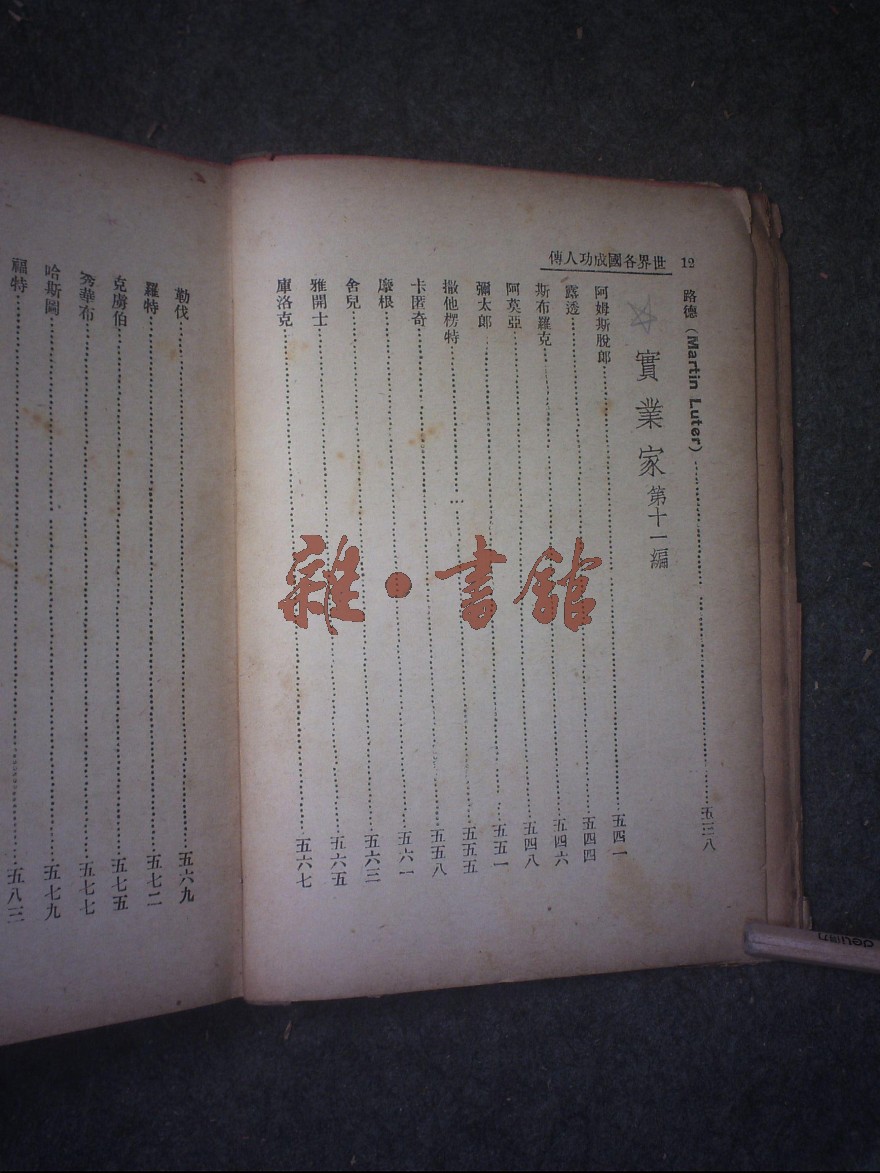 世界各國成功人傳 12
路德（Martin Luter）……五三八
實業家 第十一編
阿姆斯脫郎……五四一
露透……五四四
斯布羅克……五四六
阿莫亞……五四八
彌太郎……五五一
撒他楞特……五五五
卡匿奇……五五八
摩根……五六一
舍兒……五六三
雅開士……五六五
庫洛克……五六七
勒伐……五六九
羅特……五七二
克虜伯……五七五
秀華布……五七七
哈斯圖……五七九
福特……五八三
雜·書館
deli得力